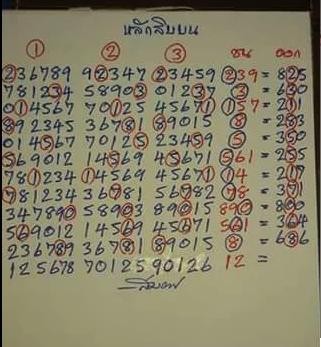 หลักสิบบน
① ② ③ ชน ออก
236789 92347 23459 239 = 825
781234 58903 01237 3 = 630
014567 70125 45671 157 = 211
892345 36781 89015 8 = 283
014567 70125 23459 5 = 350
569012 14569 45671 561 = 255
781234 14569 45671 14 = 217
781234 36781 56782 78 = 371
347890 58903 89015 890 = 800
569012 14569 45671 561 = 364
236789 36781 89015 8 = 686
125678 70125 90126 12 =